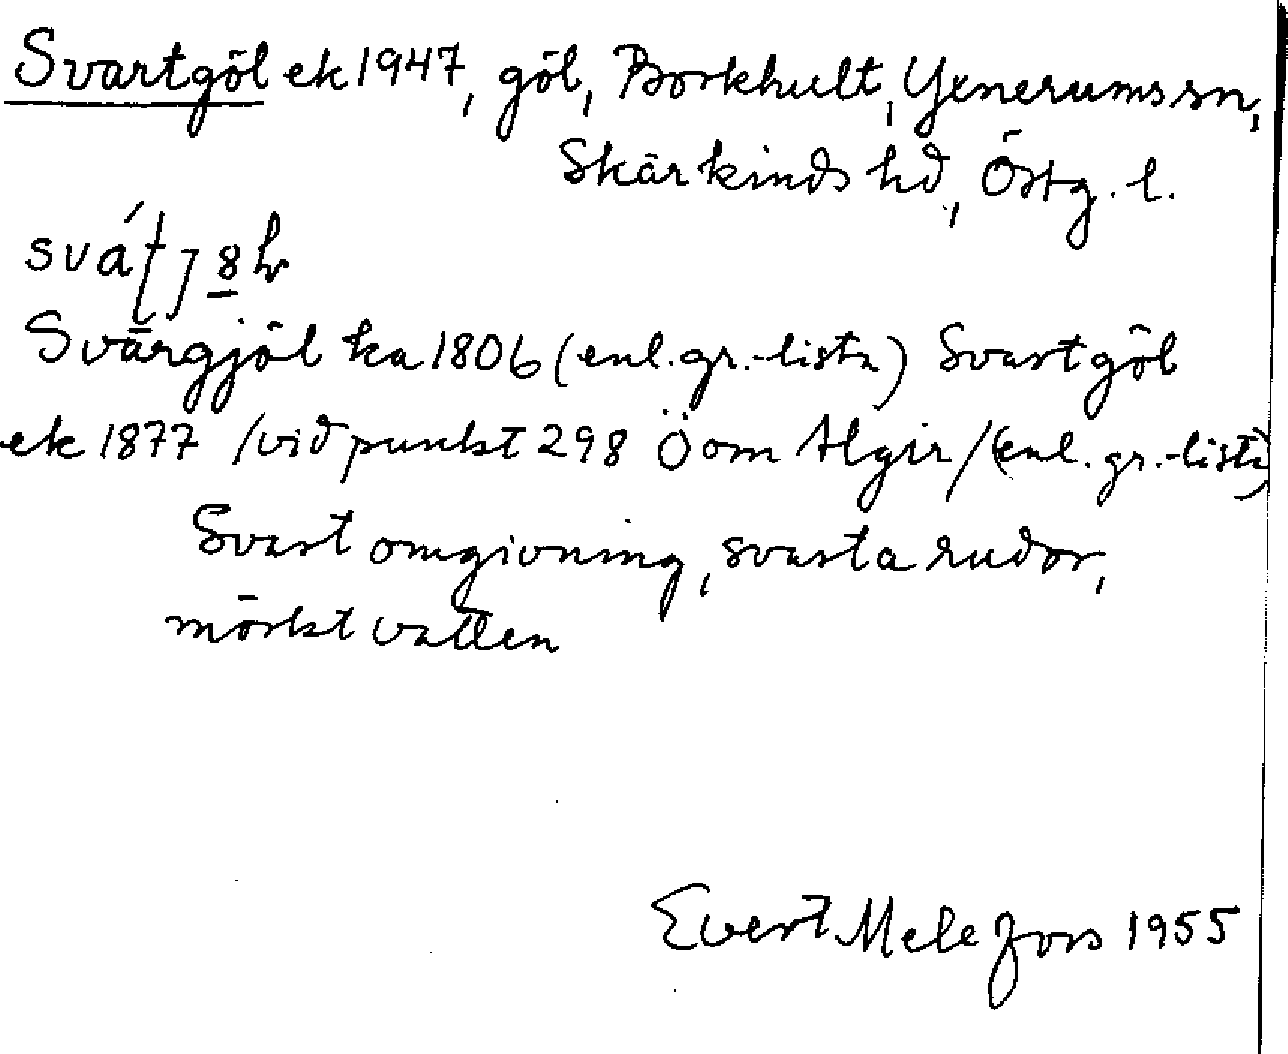 Svartgöl ek 1947, göl, Borkhult, Yxnerums sn,
Skärkinds hd, Östg. l.
Svärgjöl ka 1806 (enl. gr.-lista) Svartgöl
ek 1877 /vid punkt 298 Ö om Algir/ (enl. gr.-lista)
Svart omgivning, svarta rudor,
mörkt vatten
Evert Melefors 1955